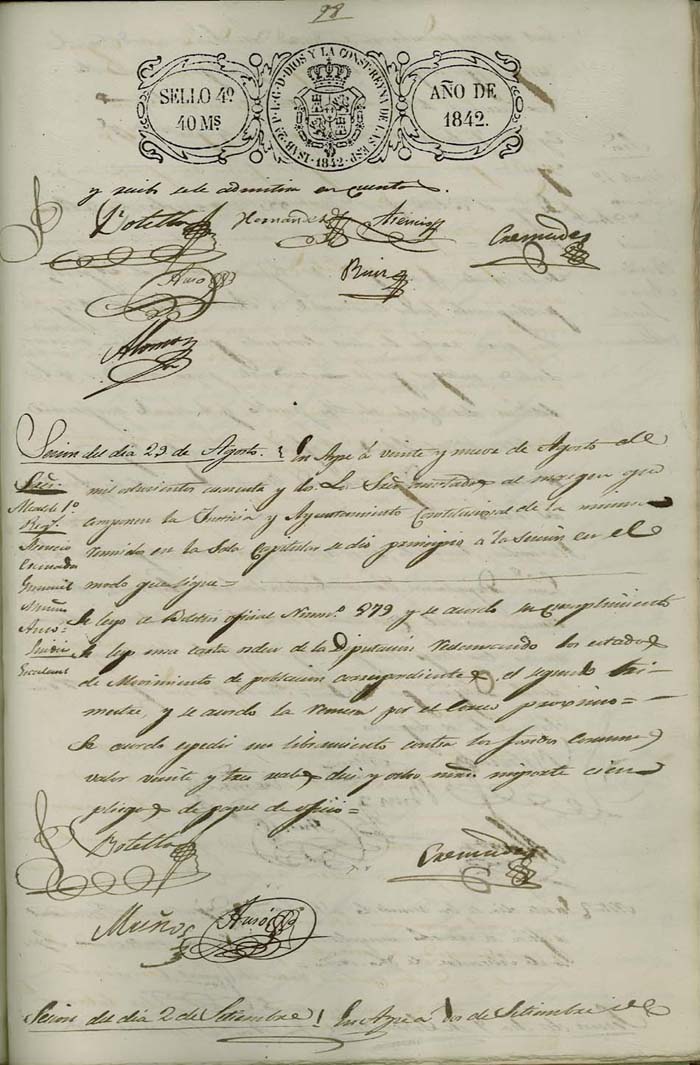 98
SELLO 4º
40 Ms
ISAB. 2ª P. L. G. D. DIOS Y LA CONST. REYNA DE LAS ESP.
1842
AÑO DE
1842.
y recibo se le admitira en cuenta
Botella Hernandez Asencio Cremades
Ausó Ruiz
Alonso
Secion del dia 29 de Agosto. En Aspe á veinte y nueve de Agosto de
mil ochocientos cuarenta y dos. Los Sres. anotados al margen que
componen la Justicia y Ayuntamiento Constitucional de la misma
reunidos en la Sala Capitular se dio principio á la Secion en el
modo que sigue=
Sres.
Alcalde 1º
Regs.
Asencio
Cremades
Muñoz
Ausó=
Se leyo el Boletin oficial Numº. 979 y se acordo su cumplimiento
Se leyo una carta orden de la Diputacion reclamando los estados
de Movimiento de poblacion correspondientes el segundo tri-
mestre, y se acordo la remesa por el Correo proximo=
Se acordo espedir un libramiento contra los fondos Comunes
valor veinte y tres reales diez y ocho mrs. importe cien
pliegos de papel de oficio=
Botella Cremades
Muños Ausó
Secion del dia 2 de Setiembre En Aspe á dos de Setiembre de